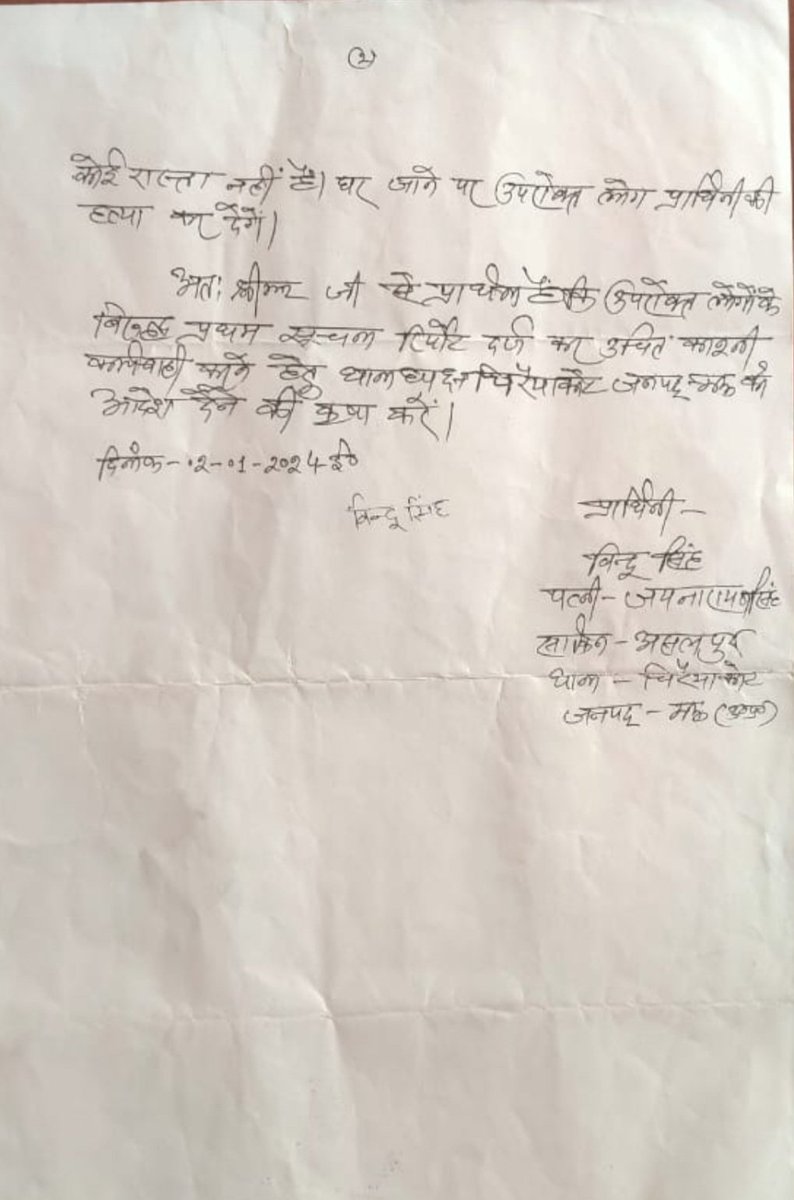 (2)
कोई रास्ता नहीं है। घर जाने पर उपरोक्त लोग प्रार्थिनी की
हत्या कर देंगे।
अतः श्रीमान जी से प्रार्थना है कि उपरोक्त लोगों के
विरूद्ध प्रथम सूचना रिपोर्ट दर्ज कर उचित कानूनी
कार्यवाही करने हेतु थानाध्यक्ष चिरैयाकोट जनपद-मऊ को
आदेश देने की कृपा करें।
दिनांक-02-01-2024 ई०
विन्दू सिंह
प्रार्थिनी-
विन्दू सिंह
पत्नी-जयनारायण सिंह
साकिन-असलपुर
थाना - चिरैयाकोट
जनपद - मऊ (उ०प्र०)